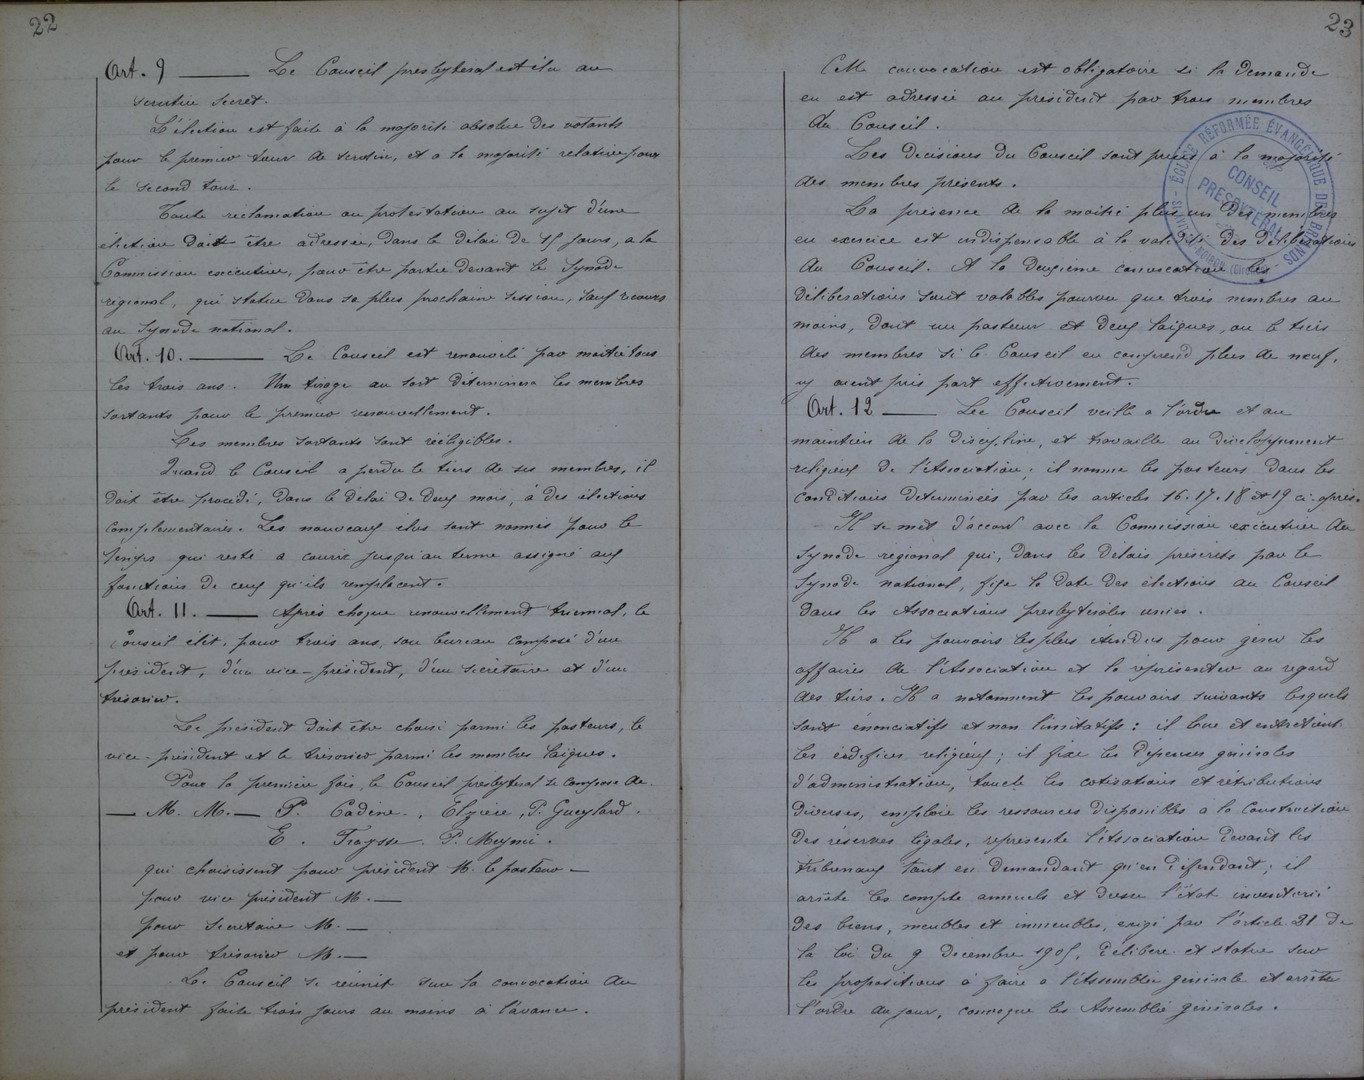 22
Art. 9 — Le Conseil presbytéral est élu au
scrutin secret.
L'élection est faite à la majorité absolue des votants
pour le premier tour de scrutin, et a la majorité relative pour
le second tour.
Toute réclamation ou protestation au sujet d'une
élection doit être adressée, dans le délai de 15 jours, a la
Commission exécutive, pour être portée devant le Synode
régional, qui statue dans sa plus prochaine session, sauf recours
au Synode national.
Art. 10. — Le Conseil est renouvelé par moitié tous
les trois ans. Un tirage au sort déterminera les membres
sortants pour le premier renouvellement.
Les membres sortants sont rééligibles.
Quand le Conseil a perdu le tiers de ses membres, il
doit être procédé, dans le délai de deux mois, à des élections
complémentaires. Les nouveaux élus sont nommés pour le
temps qui reste a courir jusqu'au terme assigné aux
fonctions de ceux qu'ils remplacent.
Art. 11. — Après chaque renouvellement triennal, le
Conseil élit, pour trois ans, son bureau composé d'un
président, d'un vice-président, d'un secrétaire et d'un
trésorier.
Le président doit être choisi parmi les pasteurs, le
vice-président et le trésorier parmi les membres laïques.
Pour la première fois, le Conseil presbytéral se compose de
— M. M. — P. Cadène, Elzière, P. Gueylard.
E. Fraysse. P.
qui choisissent pour président M. le pasteur —
pour vice président M. —
pour Secrétaire M. —
et pour trésorier M. —
Le Conseil se réunit sur la convocation du
président faite trois jours au moins à l'avance.
23
Cette convocation est obligatoire si la demande
en est adressée au président par trois membres
du Conseil.
Les décisions du Conseil sont prises à la majorité
des membres présents.
La présence de la moitié plus un des membres
en exercice est indispensable à la validité des délibérations
du Conseil. A la deuxième convocation les
délibérations sont valables pourvu que trois membres au
moins, dont un pasteur et deux laïques, ou le tiers
des membres si le Conseil en comprend plus de neuf,
y aient pris part effectivement.
Art. 12 — Le Conseil veille a l'ordre et au
maintien de la discipline, et travaille au développement
religieux de l'Association; il nomme les pasteurs dans les
conditions déterminées par les articles 16.17.18 et 19 ci-après.
Il se met d'accord avec la Commission exécutive du
Synode régional qui, dans les délais prescrits par le
Synode national, fixe la date des élections au Conseil
dans les Associations presbytérales unies.
Il a les pouvoirs les plus étendus pour gérer les
affaires de l'Association et la représenter au regard
des tiers. Il a notamment les pouvoirs suivants lesquels
sont énonciatifs et non limitatifs: il loue et entretient
les édifices religieux; il fixe les dépenses générales
d'administration, touche les cotisations et rétributions
diverses, emploie les ressources disponibles à la Constitution
des réserves légales, représente l'Association devant les
tribunaux tant en demandant qu'en défendant; il
arrête les compte annuels et dresse l'Etat inventorié
des biens, meubles et immeubles, exigé par l'article 21 de
la loi du 9 décembre 1905, délibère et statue sur
les propositions à faire a l'Assemblée générale et arrête
l'ordre du jour, convoque les Assemblée générales.
ÉGLISE RÉFORMÉE ÉVANGÉLIQUE DE
CONSEIL
PRESBYTÉRAL